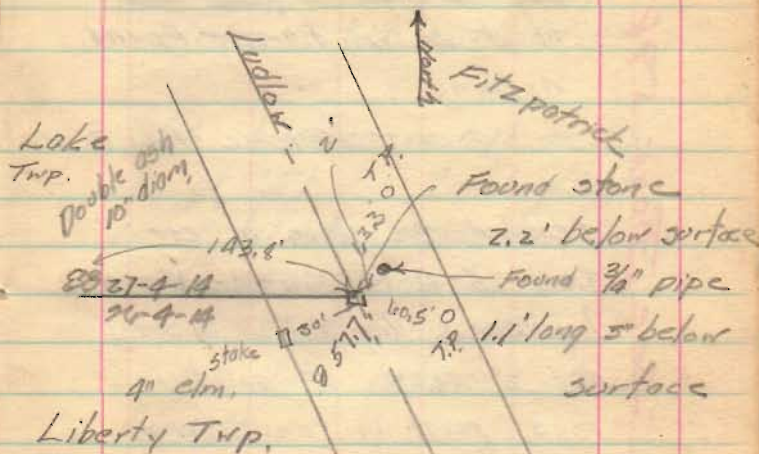 North
Ludlow
Fitzpatrick
Lake
Twp.
Double ash
10" diam.
T.P.
Found stone
2.2' below surface
33'
143.8'
Found 3/4" pipe
1.1' long 5" below
surface
27-4-14
26-4-14
30'
57.7'
40.5'
T.P.
stake
4" elm.
Liberty Twp.